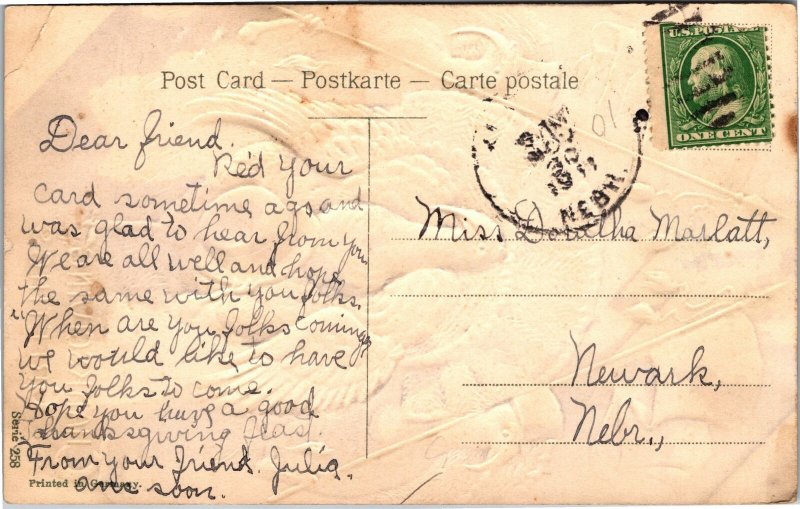 Post Card — Postkarte — Carte postale
U.S. POSTAGE
ONE CENT
NEBR.
01
Dear friend.
Re'd your
card sometime ago and
was glad to hear from you
We are all well and hope
the same with you folks.
"When are you folks coming
we would like to have
you folks to come.
Hope you have a good
thanksgiving feast
From your friend. Julia.
soon.
Miss Doratha Marlatt,
Newark,
Nebr.,
Serie 258
Printed in Germany.